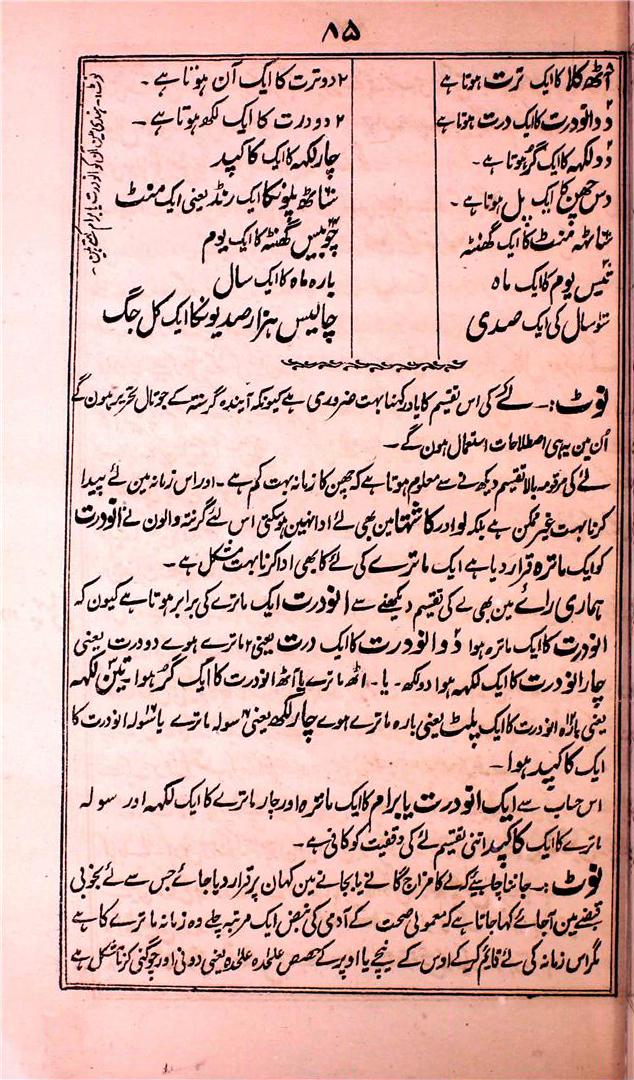 ۸۵
آٹھ کلا کا ایک ترت ہوتا ہے
۲ دو ترت کا ایک آن ہوتا ہے۔
دو انودرت کا ایک درت ہوتا ہے
۲ دو درت کا ایک لکھ ہوتا ہے۔
دو لکہہ کا ایک گر ہوتا ہے۔
چار لکہہ کا ایک کاکپد
دس چھن کا ایک پل ہوتا ہے۔
ساٹھ پلونکا ایک رنڈ یعنی ایک منٹ
ساٹہہ منٹ کا ایک گھنٹہ
چوبیس گھنٹہ کا ایک یوم
تیس یوم کا ایک ماہ
بارہ ماہ کا ایک سال
سو سال کی ایک صدی
چالیس ہزار صدیونکا ایک کل جگ
نوٹ:۔ ہندی مین ان کو انودرت یا برام کہتے ہین۔
نوٹ:۔ لے کی اس تقسیم کا یاد رکہنا بہت ضروری ہے کیونکہ آیندہ گرستہ کے جو تال تحریر ہون گے
اُن مین یہ ہی اصطلاحات استعمال ہون گے۔
لے کی مرقومہ بالا تقسیم دیکھنے سے معلوم ہوتا ہے کہ چھن کا زمانہ بہت کم ہے۔ اور اس زمانہ مین لے پیدا
کرنا بہت غیر ممکن ہے بلکہ لو اور کاشہتا مین بھی لے ادا نہین ہو سکتی اس لئے گرنتہ والون نے انودرت
کو ایک ماترہ قرار دیا ہے ایک ماترے کی لے کا بھی ادا کرنا بہت مشکل ہے۔
ہماری راے مین بھی لے کی تقسیم دیکھنے سے انودرت ایک ماترے کی برابر ہوتا ہے کیون کہ
انودرت کا ایک ماترہ ہوا دو انودرت کا ایک درت یعنی ۲ ماترے ہوے دو درت یعنی
چار انودرت کا ایک لکہہ ہوا دو لکھ۔ یا۔ اٹھ ماترے یا آٹھ انودرت کا ایک گر ہوا تین لکہہ
یعنی بارہ انودرت کا ایک پلٹ یعنی بارہ ماترے ہوے چار لکھ یعنی سولہ ماترے یا سولہ انودرت کا
ایک کاکپد ہوا۔
اس حساب سے ایک انودرت یا برام کا ایک ماترہ اور چار ماترے کا ایک لکہہ اور سولہ
ماترے کا ایک کاکپد اتنی تقسیم لے کی وقفیت کو کافی ہے۔
نوٹ:۔ جاننا چاہیئے کہ لے کا مزاج گانے یا بجانے مین کہان پر قرار دیا جائے جس سے لے بخوبی
قبضے مین آجائے کہا جاتا ہے کہ معمولی صحت کے آدمی کی نبض ایک مرتبہ چلے وہ زمانہ ماترے کا ہے
مگر اس زمانہ کی لے قایم کر کے اوس کے نیچے یا اوپر کے حصص علحٰدہ علحٰدہ یعنی دونی اور چوگنی کرنا مشکل ہے